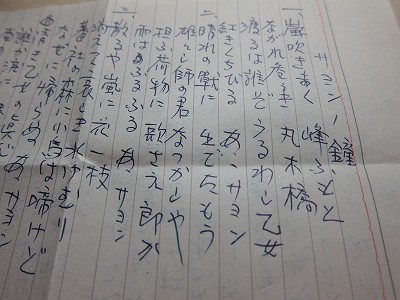 サヨンノ鐘
一、嵐吹きまく 峰ふもと
ながれ危き 丸木橋
渡るは誰ぞうるわし乙女
紅きくちびる あゝサヨン
二、晴れの戦に 出でたもう
雄々し師の君 なつかしや
担ふ荷物に歌さえ朗か
雨はふるふる あゝサヨン
三、散るや嵐に花一枝
消えて哀しき水けむり
蕃社の森に小鳥は啼けど
なぜに帰らぬ あゝサヨン
清き乙女の真心を
誰か涙に